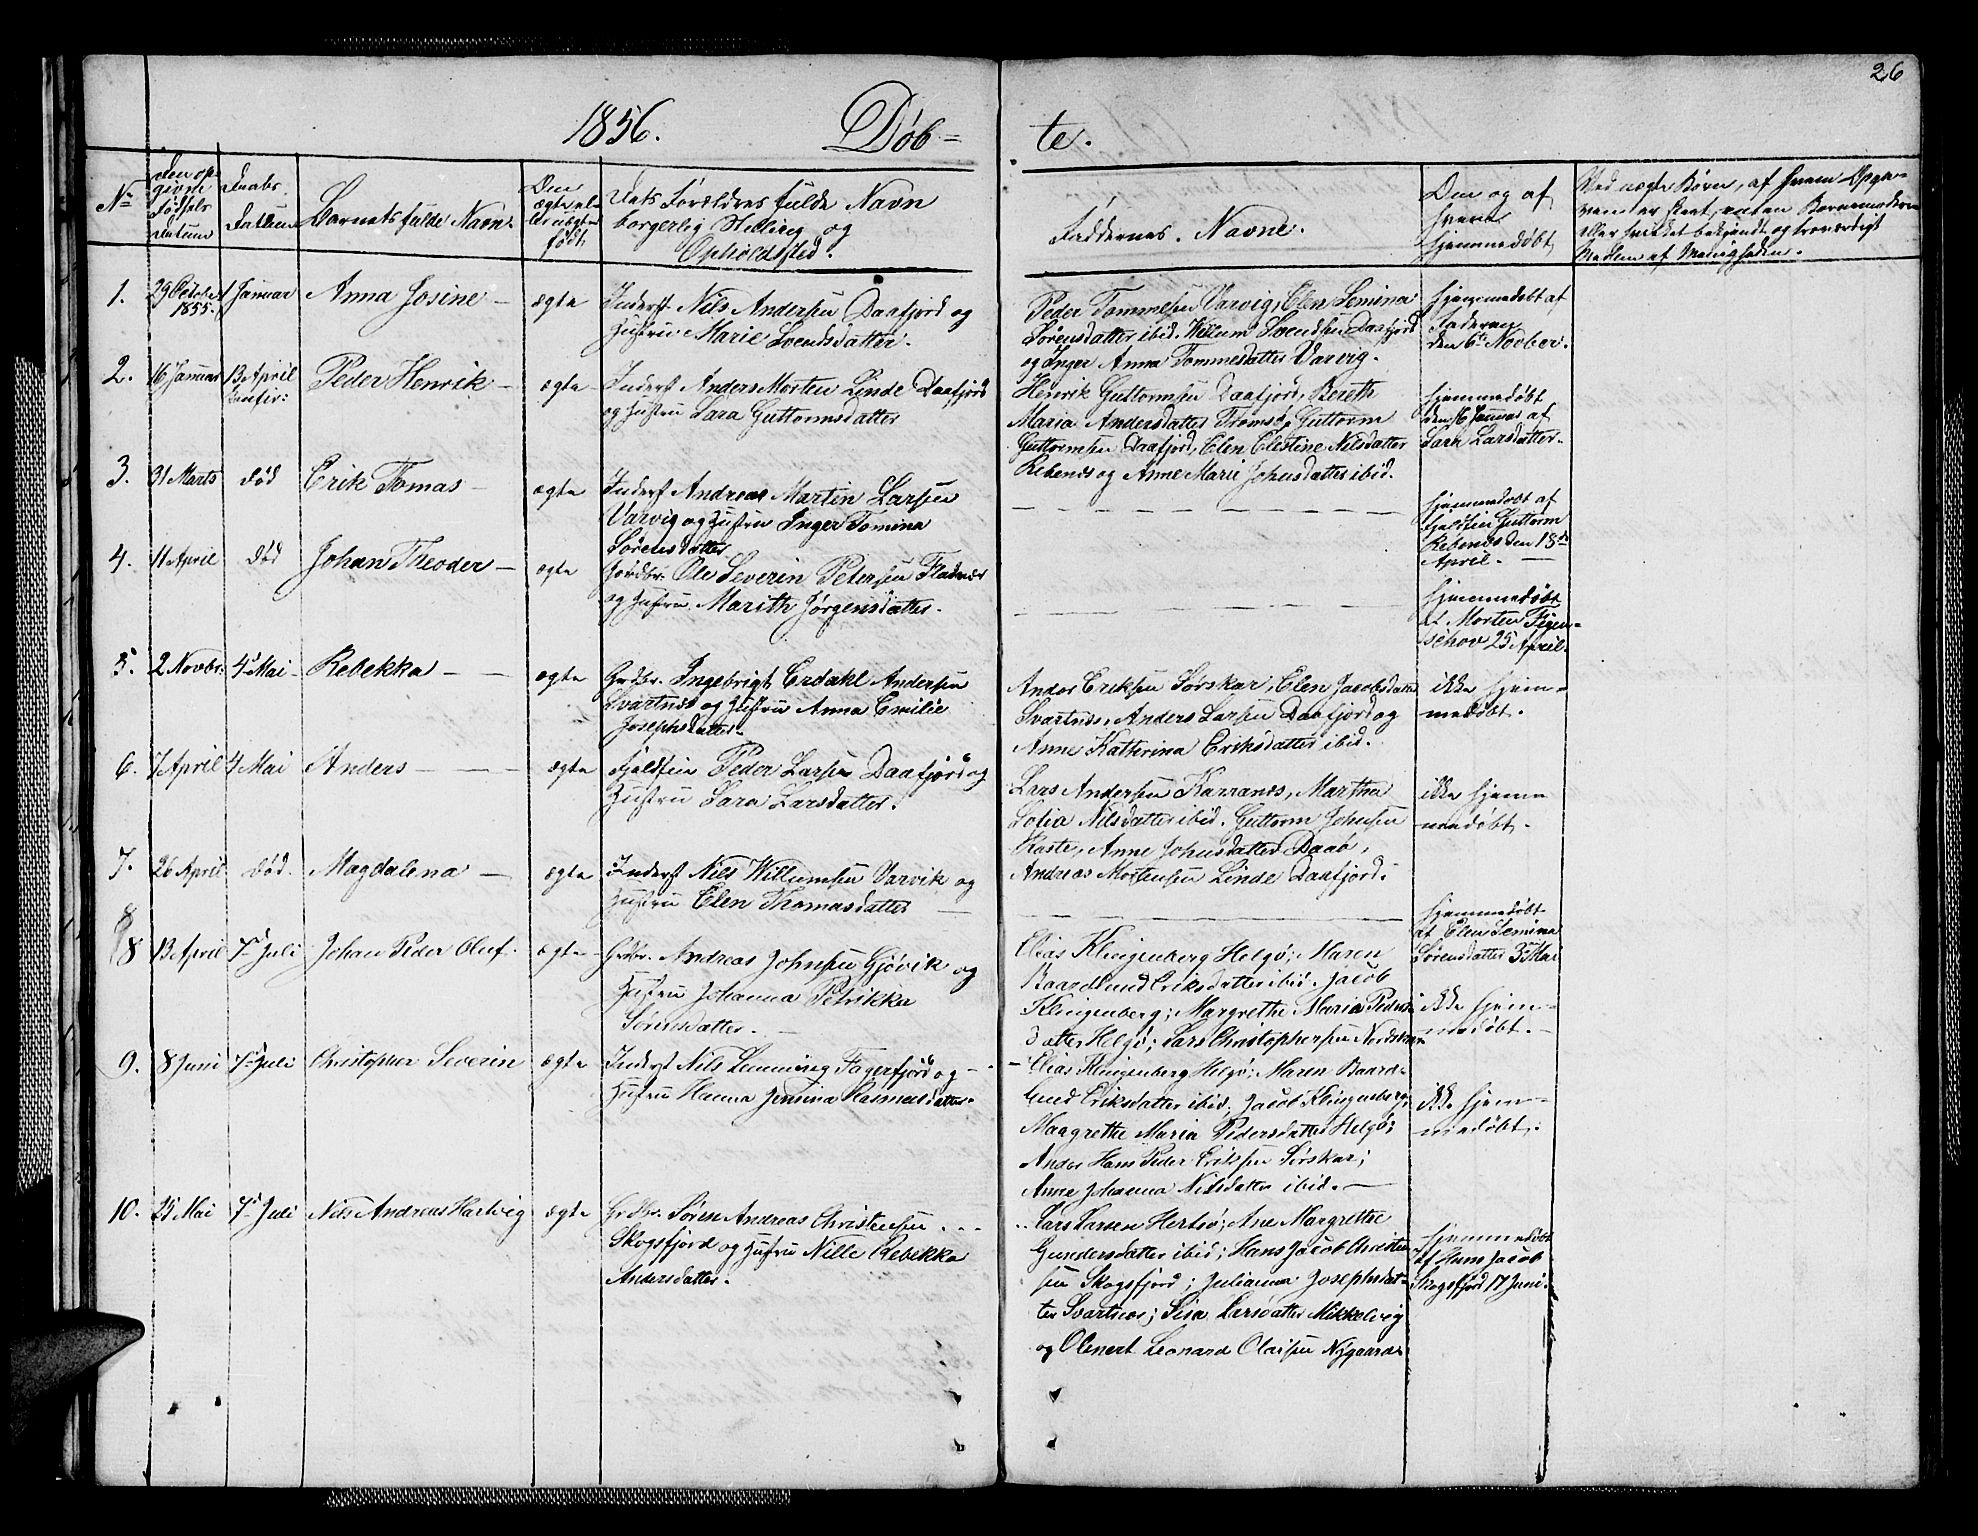 26
1856. Døb-
te.
No
den op-
givne
Fødsels
Datum
Daabs
Datum
Barnets fulde Navn.
Den
ægte el-
ler uægte
født
Dets Forældres fulde Navn
borgerlig Stilling og
Opholdsted.
Faddernes Navne.
Om og af
hvem
hjemmedøbt
Ved uægte Børn, af hvem Opga-
ven er skeet, enten Barnemoderen
eller hvilket bekjendt og troværdigt
Medlem af Menigheden.
1. 29 October 1855. 1 Januar Anna Josine — ægte
Inderst Nils Andersen Daafjord og
Hustru Marie Svendsdatter.
Peder Tommesen Varvig, Elen Semina
Sørensdatter ibid. Willum Svendsen Daafjord
og Inger Anna Tommesdatter Varvig.
hjemmedøbt af
Faderen
den 6te Novber.
2. 16 Januar 13 April Peder Henrik — ægte
Inderst Anders Morten Linde Daafjord
og Hustru Sara Guttormsdatter
Henrik Guttormsen Daafjord, Bereth
Maria Andersdatter Tromsø, Guttorm
Guttormsen Daafjord, Elen Elestine Nilsdatter
Rebenes og Anne Marie Johnsdatter ibid.
hjemmedøbt
den 16 Januar af
Sara Larsdatter.
3. 31 Marts død Erik Tomas — ægte
Inderst Andreas Martin Larsen
Varvig og Hustru Inger Tomina
Sørensdatter
hjemmedøbt af
Fjeldfin Guttorm
Rebenes den 13de
April. —
4. 11 April død Johan Theodor — ægte
Gordbr. Ole Severin Petersen Fladvær
og Hustru Marith Jørgensdatter.
hjemmedøbt
af Morten Figen-
schov 25 April.
5. 2 Novbr. 4 Mai — Rebekka — — ægte
Grdbr. Ingebrigt Erdahl Andersen
Svartnæs og Hustru Anna Emilie
Josephsdatter.
Andor Eriksen Sørskar, Elen Jacobsdatter
Svartnæs, Anders Larsen Daafjord og
Anne Katherina Eriksdatter ibid.
ikke hjem-
medøbt.
6. 7 April 4 Mai Anders — — — ægte
Fjeldfin Peder Larsen Daafjord og
Hustru Sara Larsdatter.
Lars Andersen Kavanæs, Martha
Sofia Nilsdatter ibid. Guttorm Johnsen
Koste, Anne Johnsdatter Daaø,
Andreas Mortensen Linde Daafjord.
ikke hjem
medøbt.
7. 26 April død. Magdalena — ægte
Inderst Nils Willumsen Varvik og
Hustru Elen Thomasdatter —
hjemmedøbt
af Elen Semina
Sørensdatter 3 Mai
8
8 13 April 7 Juli Johan Peder Oluf. ægte
Grdbr. Andreas Johnsen Gjøvik og
Hustru Johanna Petrikka
Sørensdatter. —
Elias Klingenberg Helgø; Maren
Baardlund Eriksdatter ibid. Jacob
Klingenberg; Margrethe Maria Peders-
datter Helgø; Lars Christophersen Nordskar
ikke hjem-
medøbt. —
9. 8 Juni 7 Juli Christopher Severin ægte
Inderst Nils Lemming Fagerfjord og —
Hustru Hanna Jensina Rasmusdatter.
— Elias Klingenberg Helgø; Maren Baard-
lund Eriksdatter ibid. Jacob Klingenberg;
Maagrethe Maria Pedersdatter Helgø;
Andor Hans Peder Eriksen Sørskar;
Anne Johanna Nilsdatter ibid. —
ikke hjem-
medøbt.
10. 25 Mai 7 Juli Nils Andreas Hartvig ægte
Grdbr. Søren Andreas Christensen . . .
Skogsfjord og Hustru Nille Rebekka
Andersdatter.
Lars Larsen Hersø; Ane Margrethe
Gundersdatter ibid; Hans Jacob Christen-
sen Skogsfjord; Julianna Josephsdat-
ter Svartnes; Sisa Larsdatter Mikkelvig
og Olenert Leonard Olaisen Nygaard.
hjemmedøbt
af Hans Jacob
Skogsfjord 17 Juni.